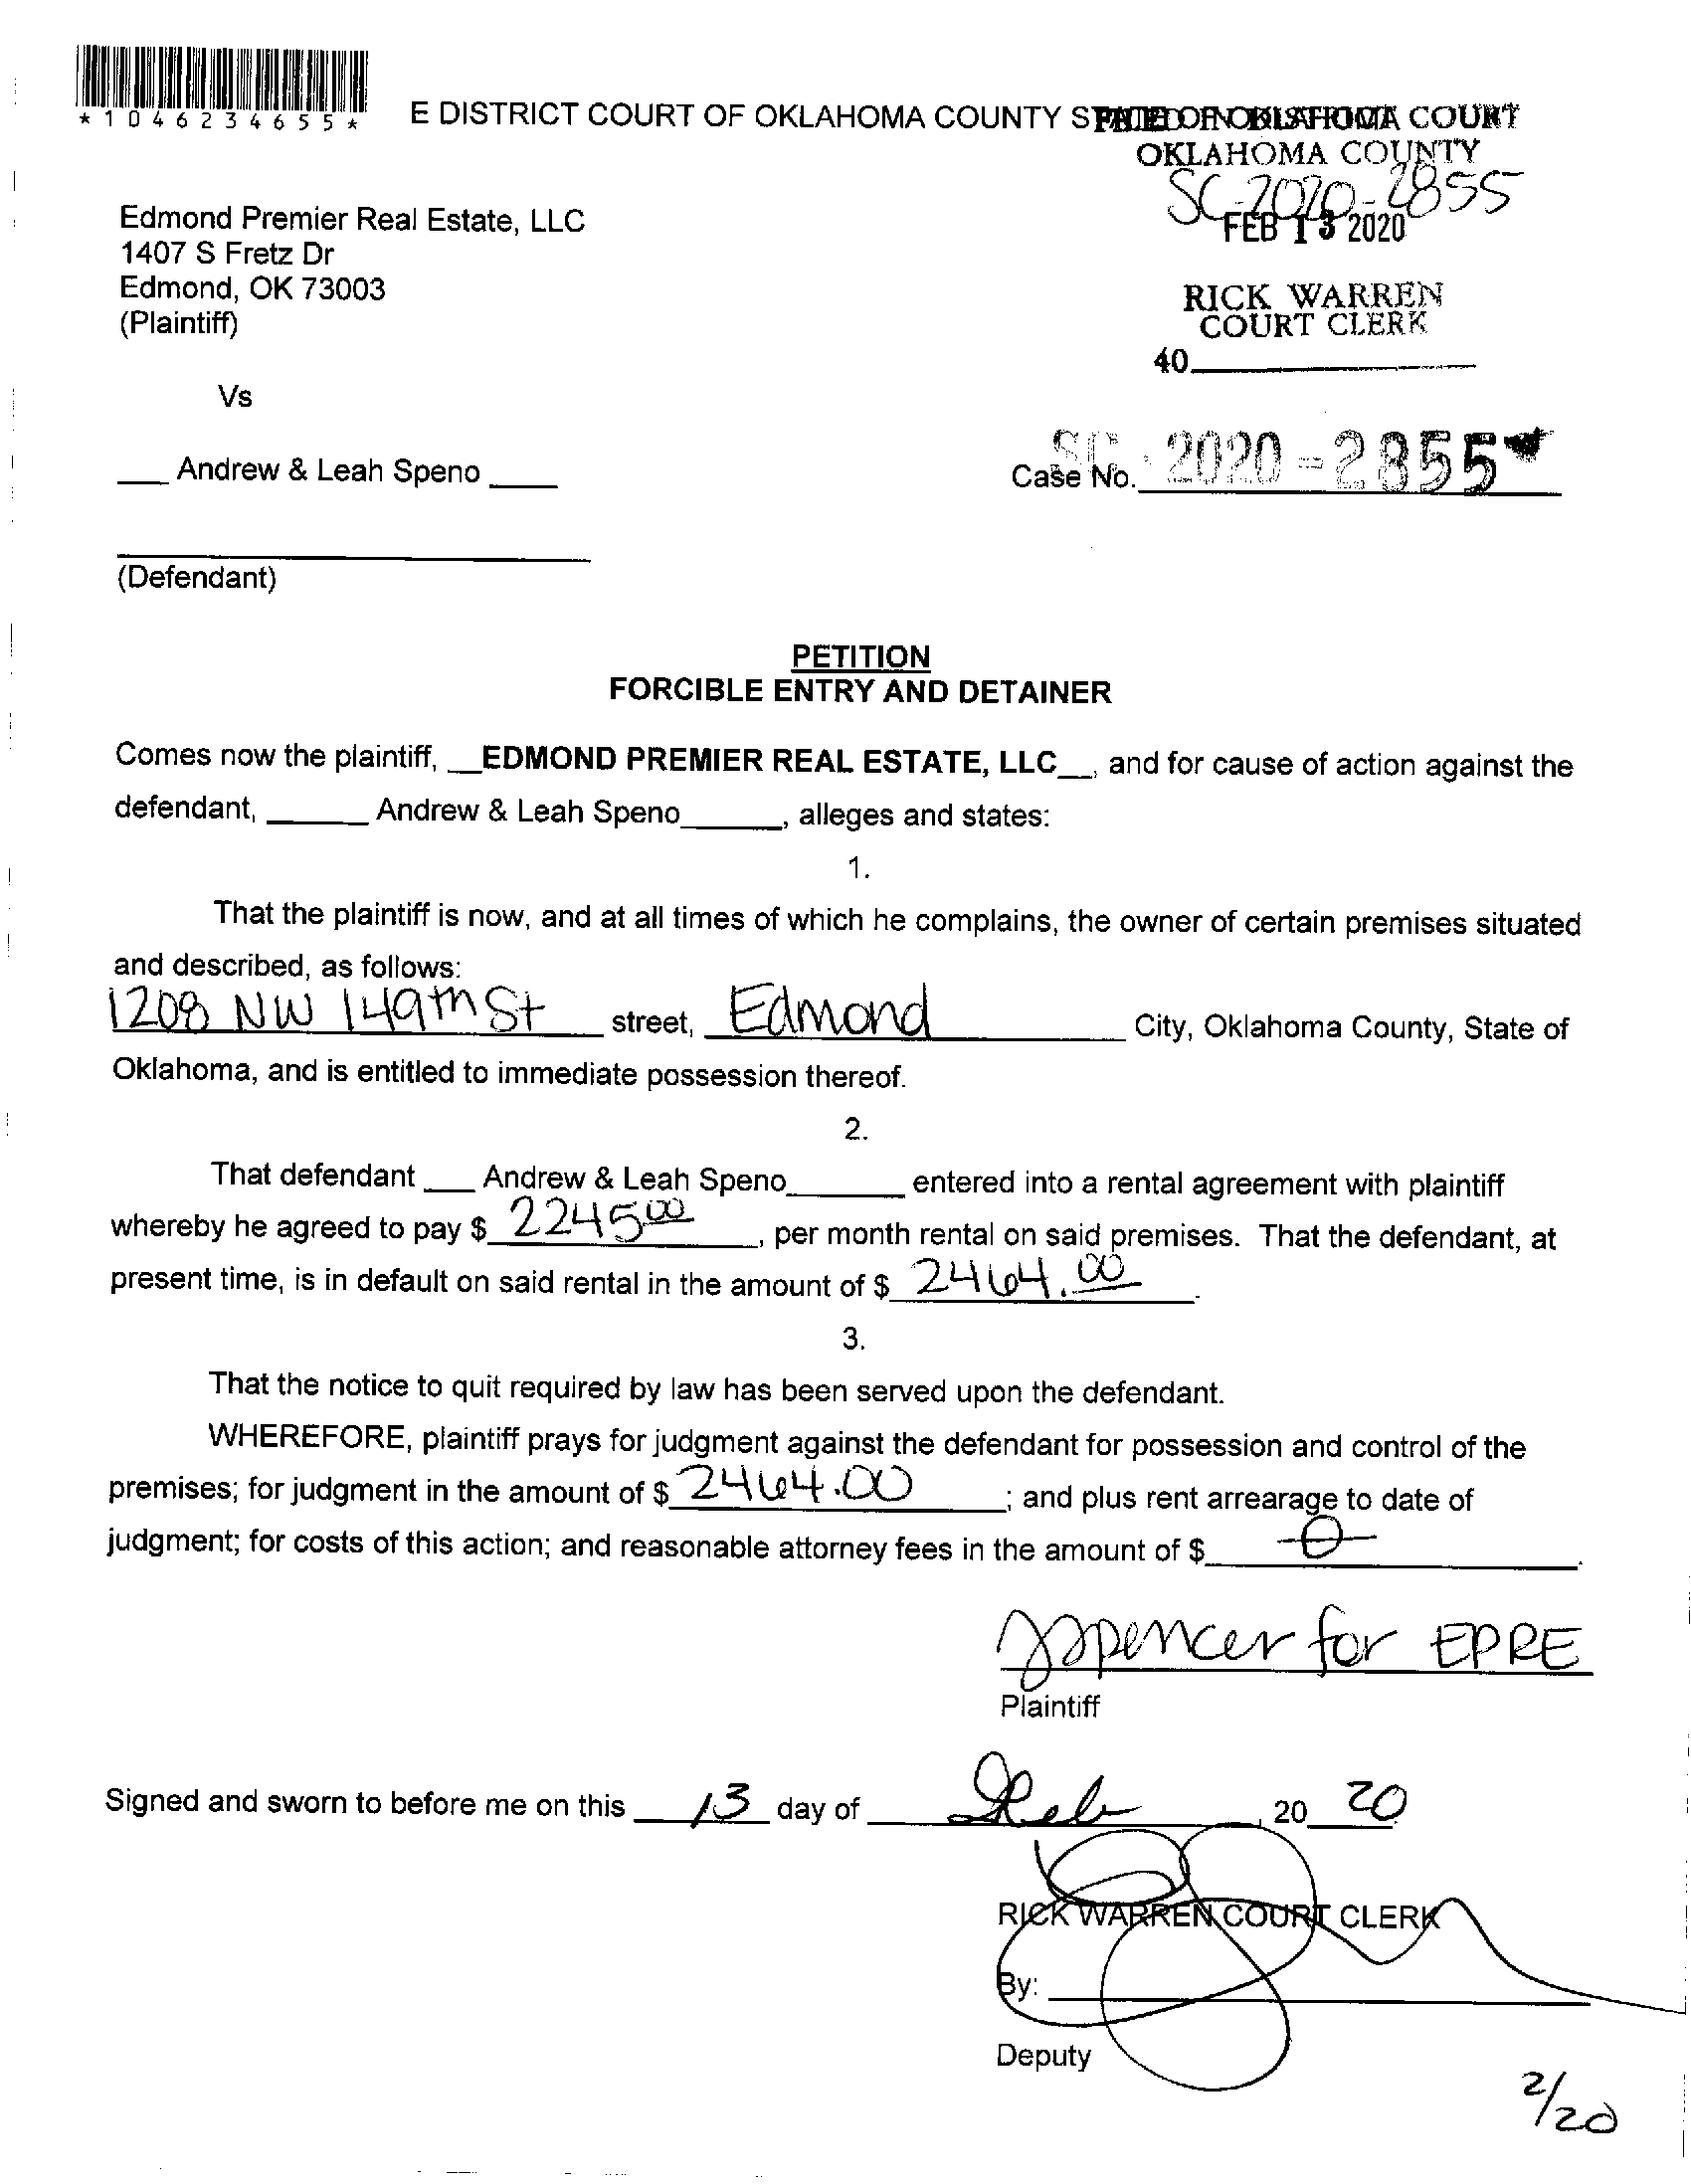 *1046234655*
E DISTRICT COURT OF OKLAHOMA COUNTY STATE OF OKLAHOMA
FILED IN DISTRICT COURT
OKLAHOMA COUNTY
SC-2020-2855
FEB 13 2020
Edmond Premier Real Estate, LLC
1407 S Fretz Dr
Edmond, OK 73003
(Plaintiff)
RICK WARREN
COURT CLERK
40
Vs
Andrew & Leah Speno
Case No. SC-2020-2855
(Defendant)
PETITION
FORCIBLE ENTRY AND DETAINER
Comes now the plaintiff, __EDMOND PREMIER REAL ESTATE, LLC__, and for cause of action against the
defendant, ______ Andrew & Leah Speno______, alleges and states:
1.
That the plaintiff is now, and at all times of which he complains, the owner of certain premises situated
and described, as follows:
1208 NW 149th St street, Edmond City, Oklahoma County, State of
Oklahoma, and is entitled to immediate possession thereof.
2.
That defendant ___ Andrew & Leah Speno_______ entered into a rental agreement with plaintiff
whereby he agreed to pay $ 2245 00, per month rental on said premises. That the defendant, at
present time, is in default on said rental in the amount of $ 2464.00.
3.
That the notice to quit required by law has been served upon the defendant.
WHEREFORE, plaintiff prays for judgment against the defendant for possession and control of the
premises; for judgment in the amount of $ 2464.00; and plus rent arrearage to date of
judgment; for costs of this action; and reasonable attorney fees in the amount of $ 0.
JSpencer for EPRE
Plaintiff
Signed and sworn to before me on this 13 day of Feb, 20 20
RICK WARREN COURT CLERK
By:
Deputy
2/20